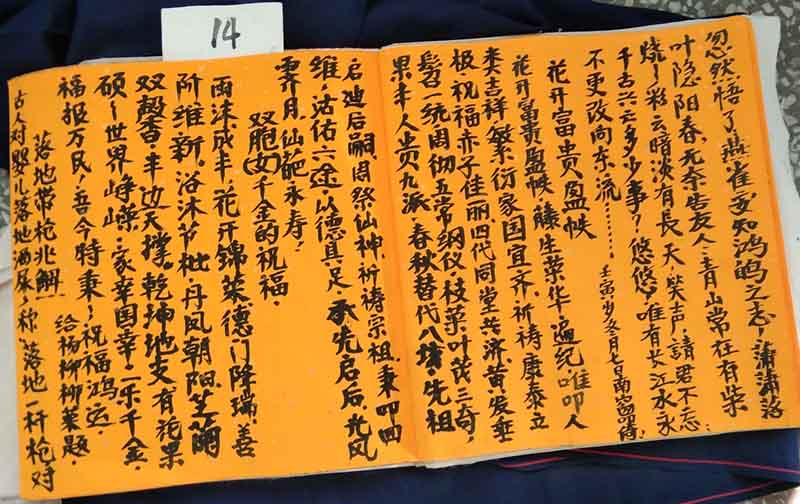 14
忽然悟了燕雀安知鸿鹄之志，蒲蒲落
叶隐阳春无奈告友人，青山常在有柴
烧，彩云暗淡有長天，笑声請君不忘：
千古兴亡多少事？悠悠，唯有长江水永
不更改向东流……壬寅岁冬月七日南窗
花开富贵盈帙
花开富贵盈帙，藤生荣华，遍纪唯叩人
类吉祥，繁衍家国宜齐，祈祷康泰立
极，祝福赤子佳丽，四代同堂共济，黄发垂
髫召一统周彻五常纲仪，枝葉叶茂三奇，
果丰人贵九派，春秋替代八埏，先祖
启迪后嗣，周祭仙神，祈祷宗祖，秉叩四
维，沾佑六途以德具足，承先启后，光风
霁月，仙葩永寿！
双胞(女)千金的祝福，
雨沫成丰，花开锦葉，德门降瑞，善
阶维新，浴沐节枇，丹凤朝阳，芝兰
双馨香，丰边天撑，乾坤地支，有花果
硕，世界峥嵘，家幸国幸，一乐千金，
福报万民，吾今特秉，祝福鸿运，
给杨柳柳葉题，
落地带枪兆
古人对婴儿落地洒尿，称，落地一杆枪对